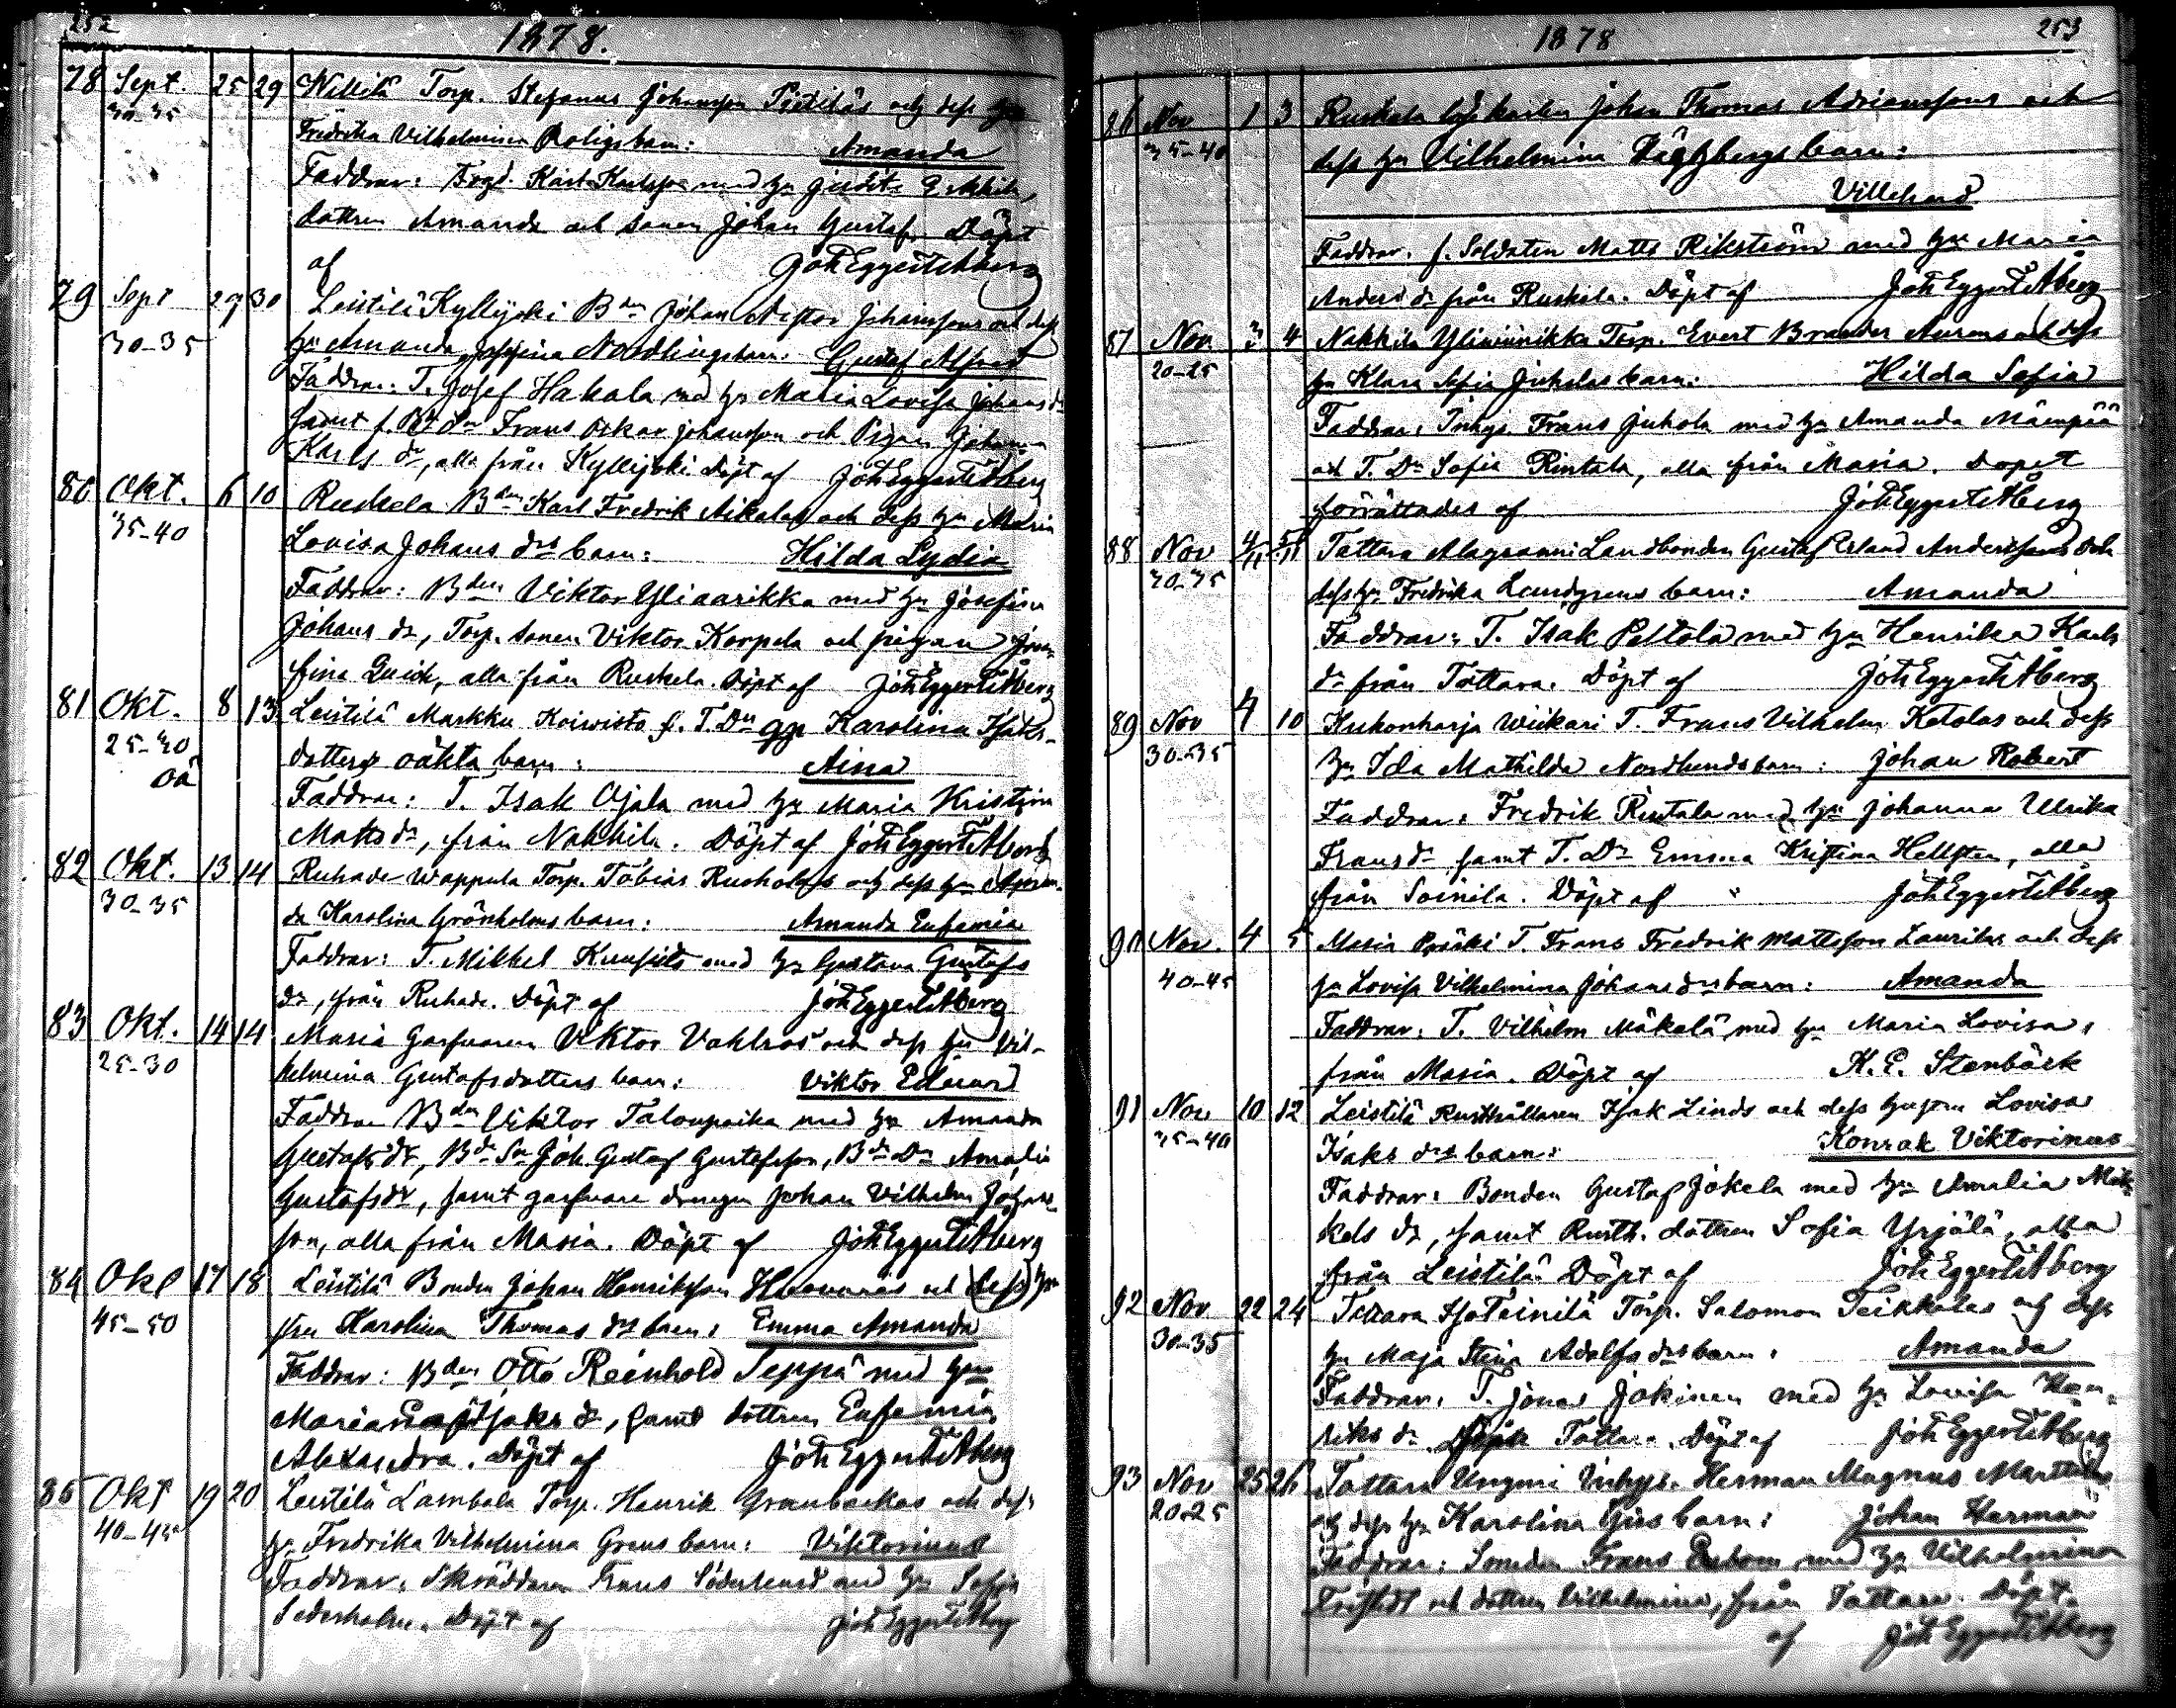 252
1878.
78 Sept. 25 29 Torp. Stefanus Johansson och dess
30-35 Fredrika Vilhelmina barn: Amanda
Faddrar: Karl Karlsson med
dottren Amanda och sonen Johan Gustaf. Döpt
af Joh Eggert Åberg
79 Sept 29 30 Leistilä Kyllijoki Bden Johan Nestor Johanssons och dess
30-35 hu Amanda Josefina barn: Gustaf Alfred
Faddrar: T. Josef Hakala med hu Maria Lovisa Johans dr
samt f. Frans Oskar Johansson och Pigan Johanna
Karls dr, alla från Kyllijoki. Döpt af Joh Eggert Åberg
80 Okt. 6 10 Ruskela Bden Karl Fredrik och dess hu Maria
35-40 Lovisa Johans drs barn: Hilda Lydia
Faddrar: Bden Viktor Yliaarikka med hu Josefina
Johans dr, Torp. sonen Viktor Korpela och pigan
fina alla från Ruskela. Döpt af Joh Eggert Åberg
81 Okt. 8 13 Leistilä Markku Koiwisto f. T. Dn Karolina Isaks-
25-30 dotters oäkta barn: Aina
oä
Faddrar: T. Isak Ojala med hu Maria Kristina
Matts dr, från Nakkila. Döpt af Joh Eggert Åberg
82 Okt. 13 14 Ruhade Wappula Torp. Tobias och dess hu
30-35 da Karolina Grönholms barn: Amanda Eufemia
Faddrar: T. Mikkel med hu Gustava Gustafs
dr, från Ruhade. Döpt af Joh Eggert Åberg
83 Okt. 14 14 Masia Garfvaren Viktor och dess hu Vil-
25-30 helmina Gustafsdotters barn: Viktor Edvard
Faddrar Bden Viktor Talonpoika med hu Amanda
Gustafs dr, Bde Sn Joh. Gustaf Gustafsson, Bde Dn Amalia
Gustafs dr, samt garfvare drengen Johan Vilhelm Johans-
son, alla från Masia. Döpt af Joh Eggert Åberg
84 Okt 17 18 Leistilä Bonden Johan Henriksson och dess hu
45-50 Karolina Thomas drs barn: Emma Amanda
Faddrar: Bden Otto Reinhold Seppä med hu
Maria Isaks dr, samt dottren Eufemia
Alexandra. Döpt af Joh Eggert Åberg
85 Okt 19 20 Leistilä Lambala Torp. Henrik Granbackas och dess
40-45 hu Fredrika Vilhelmina Grens barn: Viktorinus
Faddrar: Skräddaren Frans Söderlund med hu Sofia
Sederholm. Döpt af Joh Eggert Åberg
1878 253
86 Nov 1 3 Ruskela Johan Thomas Adrianssons och
35-40 dess hu Vilhelmina barn:
Villehard
Faddrar. f. Soldaten Matts Rikström med hu Maria
Anders dr från Ruskela. Döpt af Joh Eggert Åberg
87 Nov 3 4 Nakkila Torp. Evert Brander och dess
20-25 hu Klara Sofia Juholas barn: Hilda Sofia
Faddrar: Inhys. Frans Juhola med hu Amanda Mäenpää
och T. Dn Sofia Rintala, alla från Masia. Dopet
förrättades af Joh Eggert Åberg
88 Nov 4/11 5/11 Tattara Alagranni Landbonden Gustaf Erland Anderssons och
30-35 dess hu Fredrika Lundgrens barn: Amanda
Faddrar: T. Isak Peltola med hu Henrika Karls
dr från Tattara. Döpt af Joh Eggert Åberg
89 Nov 4 10 Kukonharja Wiikari T. Frans Vilhelm Ketolas och dess
30-35 hu Ida Mathilda Nordlunds barn: Johan Robert
Faddrar: Fredrik Rintala med hu Johanna Ulrika
Frans dr samt T. Dn Emma Kristina Hellsten, alla
från Soinila. Döpt af Joh Eggert Åberg
90 Nov. 4 5 Masia T. Frans Fredrik Mattsson Laurilas och dess
40-45 hu Lovisa Vilhelmina Johans drs barn: Amanda
Faddrar: T. Vilhelm Mäkelä med hu Maria Lovisa,
från Masia. Döpt af K. E. Stenbäck
91 Nov 10 12 Leistilä Rusthållaren Isak Linds och dess hustru Lovisa
35-40 Isaks drs barn: Konrak Viktorinus
Faddrar: Bonden Gustaf Jokela med hu Amalia Mik-
kels dr, samt Rusth. dottren Sofia Yrjälä, alla
från Leistilä. Döpt af Joh Eggert Åberg
92 Nov 22 24 Tattara Torp. Salomon Teikkalas och dess
30-35 hu Maja Stina Adolfs drs barn: Amanda
Faddrar: T. Jonas Jokinen med hu Lovisa Hen-
riks dr Tattara. Döpt af Joh Eggert Åberg
93 Nov 25 26 Tattara Ungini Inhys. Herman Magnus
20-25 och dess hu Karolina barn: Johan Herman
Faddrar: Smeden Frans med hu Vilhelmina
och dottren Vilhelmina, från Tattara. Döpt
af Joh Eggert Åberg